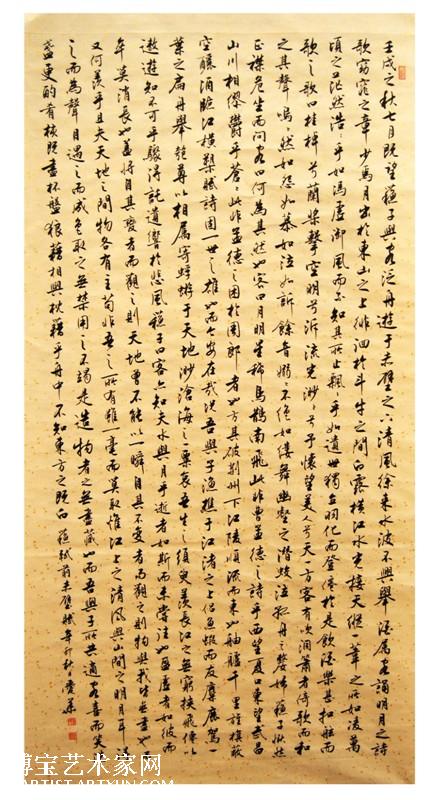 壬戌之秋七月既望蘇子與客泛舟遊于赤壁之下清風徐來水波不興舉酒屬客誦明月之詩
歌窈窕之章少焉月出於東山之上徘徊於斗牛之間白露橫江水光接天縱一葦之所如凌萬
頃之茫然浩浩乎如馮虛御風而不知其所止飄飄乎如遺世獨立羽化而登僊於是飲酒樂甚扣舷而
歌之歌曰桂棹兮蘭槳擊空明兮泝流光渺渺兮予懷望美人兮天一方客有吹洞簫者倚歌而和
之其聲嗚嗚然如怨如慕如泣如訴餘音嫋嫋不絕如縷舞幽壑之潛蛟泣孤舟之嫠婦蘇子愀然
正襟危坐而問客曰何為其然也客曰月明星稀烏鵲南飛此非曹孟德之詩乎西望夏口東望武昌
山川相繆鬱乎蒼蒼此非孟德之困於周郎者也方其破荊州下江陵順流而東也舳艫千里旌旗蔽
空釃酒臨江橫槊賦詩固一世之雄也而今安在哉況吾與子漁樵于江渚之上侶魚蝦而友麋鹿駕一
葉之扁舟舉匏尊以相屬寄蜉蝣于天地渺滄海之一粟哀吾生之須臾羨長江之無窮挾飛僊以
遨遊知不可乎驟得託遺響於悲風蘇子曰客亦知夫水與月乎逝者如斯而未嘗往也盈虛者如彼而
卒莫消長也蓋將自其變者而觀之則天地曾不能以一瞬自其不變者而觀之則物與我皆無盡也
又何羨乎且夫天地之間物各有主苟非吾之所有雖一毫而莫取惟江上之清風與山間之明月耳
之而為聲目遇之而成色取之無禁用之不竭是造物者之無盡藏也而吾與子所共適客喜而笑
盞更酌肴核既盡杯盤狼藉相與枕藉乎舟中不知東方之既白 蘇軾前赤壁賦辛卯秋
博宝艺术家网
ARTIST.ARTXUN.COM